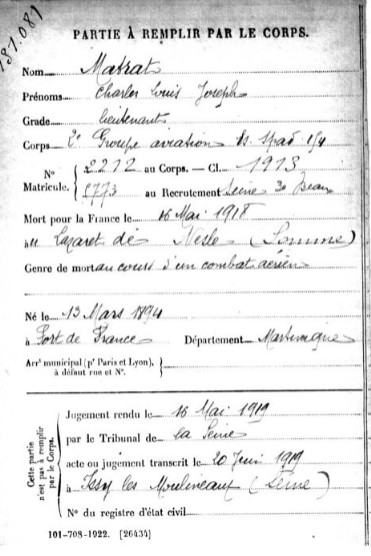 131.081
PARTIE À REMPLIR PAR LE CORPS.
Nom Matrat
Prénoms Charles Louis Joseph
Grade lieutenant
Corps 2e Groupe aviation Es. Spad 154
N° 2212 au Corps. — Cl. 1913
Matricule. 1773 au Recrutement Seine 3e Bureau
Mort pour la France le 16 Mai 1918
au Lazaret de Nesle (Somme)
Genre de mort au cours d'un combat aérien
Né le 13 Mars 1894
à Fort de France Département Martinique
Arrt municipal (pr Paris et Lyon),
à défaut rue et N°.
Cette partie
n'est pas à remplir
par le Corps.
Jugement rendu le 16 Mai 1919
par le Tribunal de la Seine
acte ou jugement transcrit le 20 Juin 1919
à Issy les Moulineaux (Seine)
N° du registre d'état civil
101-708-1922. [26434]